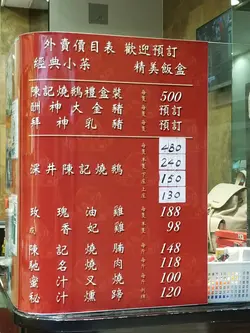 外賣價目表 歡迎預訂
經典小菜 精美飯盒
陳記燒鵝禮盒裝 500
酬神大金豬 預訂
拜神乳豬 預訂
480
深井陳記燒鵝 240
150
130
玫瑰油雞 188
或香妃雞 98
陳記燒腩 148
馳名燒肉 118
蜜汁叉燒 100
秘汁燻蹄 120